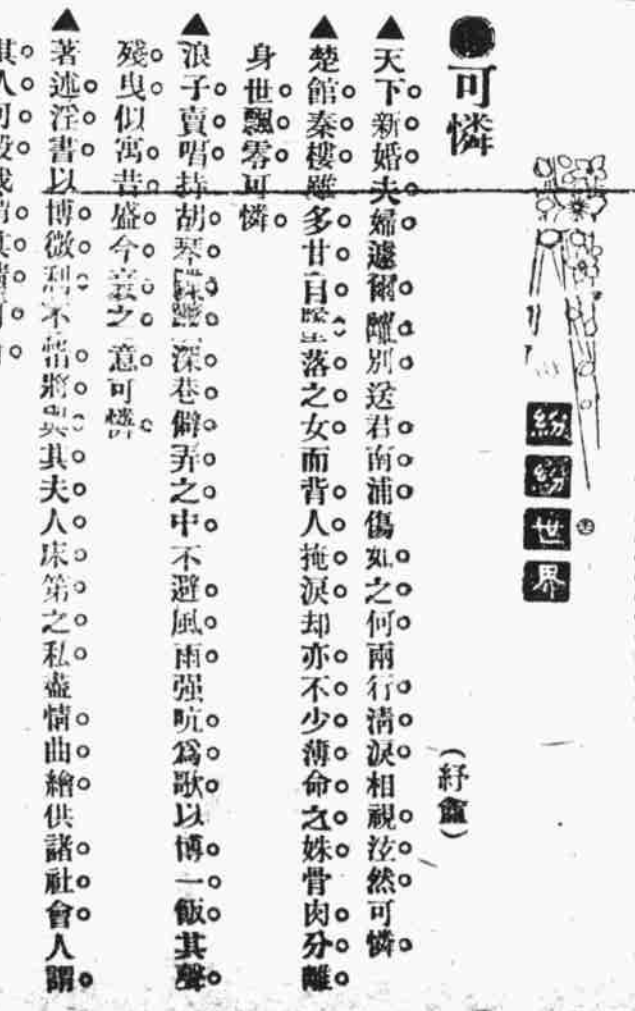 紛紛世界
可憐
(紓盦)
▲天下新婚夫婦遽爾離別送君南浦傷如之何兩行清淚相視泫然可憐
▲楚館秦樓雖多甘自墮落之女而背人掩淚却亦不少薄命之姝骨肉分離
身世飄零可憐
▲浪子賣唱持胡琴 深巷僻弄之中不避風雨强吭爲歌以博一飯其聲
殘曳似寓昔盛今衰之意可憐
▲著述淫書以博微利不惜將與其夫人床笫之私盡情曲繪供諸社會人謂
其人可殺我